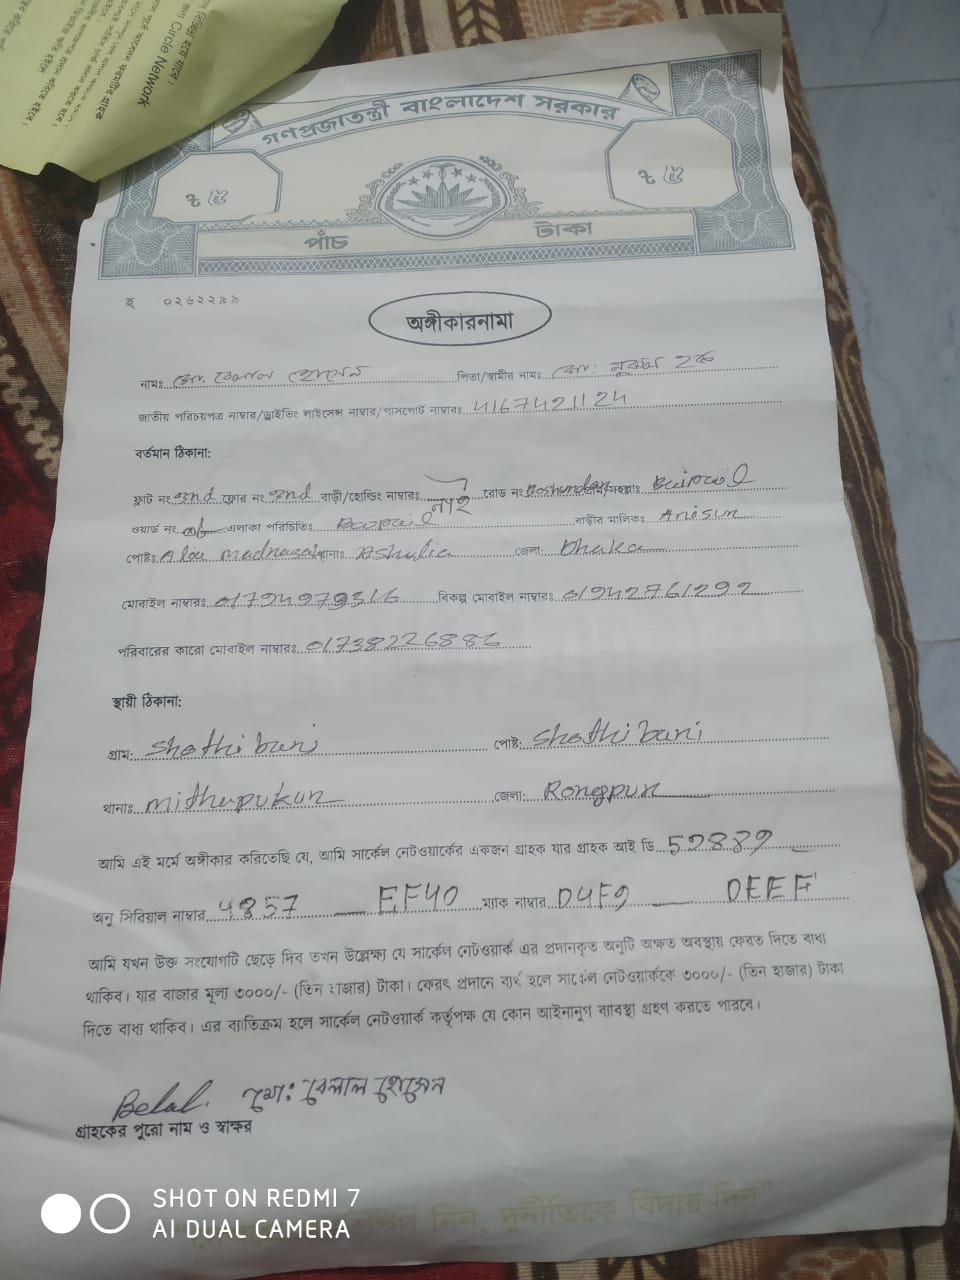 Circle Network
গণপ্রজাতন্ত্রী বাংলাদেশ সরকার
৳ ৫ ৳ ৫
পাঁচ টাকা
হ ০২৬২২৯৯
অঙ্গীকারনামা
নামঃ মো. বেলাল হোসেন পিতা/স্বামীর নামঃ মো: নুরুল হক
জাতীয় পরিচয়পত্র নাম্বার/ড্রাইভিং লাইসেন্স নাম্বার/পাসপোর্ট নাম্বারঃ 4167421124
বর্তমান ঠিকানা:
ফ্লাট নং 2nd ফ্লোর নং 2nd বাড়ী/হোল্ডিং নাম্বারঃ নাই রোড নং Boshundan Baipail
ওয়ার্ড নং এলাকা পরিচিতিঃ Baipail বাড়ীর মালিকঃ Anisur
পোষ্টঃ Alia madrasa থানাঃ Ashulia জেলা: Dhaka
মোবাইল নাম্বারঃ 01794979316 বিকল্প মোবাইল নাম্বারঃ 01942761292
পরিবারের কারো মোবাইল নাম্বারঃ 01738226886
স্থায়ী ঠিকানা:
গ্রাম: Shathibari পোষ্ট: Shathibari
থানাঃ mithapukur জেলা: Rongpur
আমি এই মর্মে অঙ্গীকার করিতেছি যে, আমি সার্কেল নেটওয়ার্কের একজন গ্রাহক যার গ্রাহক আই ডি 52889
অনু সিরিয়াল নাম্বার 4857 EF40 ম্যাক নাম্বার D4F9 DEEF
আমি যখন উক্ত সংযোগটি ছেড়ে দিব তখন উল্লেক্ষ্য যে সার্কেল নেটওয়ার্ক এর প্রদানকৃত অনুটি অক্ষত অবস্থায় ফেরত দিতে বাধ্য
থাকিব। যার বাজার মূল্য ৩০০০/- (তিন হাজার) টাকা। ফেরৎ প্রদানে ব্যর্থ হলে সার্কেল নেটওয়ার্ককে ৩০০০/- (তিন হাজার) টাকা
দিতে বাধ্য থাকিব। এর ব্যাতিক্রম হলে সার্কেল নেটওয়ার্ক কর্তৃপক্ষ যে কোন আইনানুগ ব্যাবস্থা গ্রহণ করতে পারবে।
Belal. মো: বেলাল হোসেন
গ্রাহকের পুরো নাম ও স্বাক্ষর
নিন, দুর্নীতিকে বিদায় দিন"
SHOT ON REDMI 7
AI DUAL CAMERA